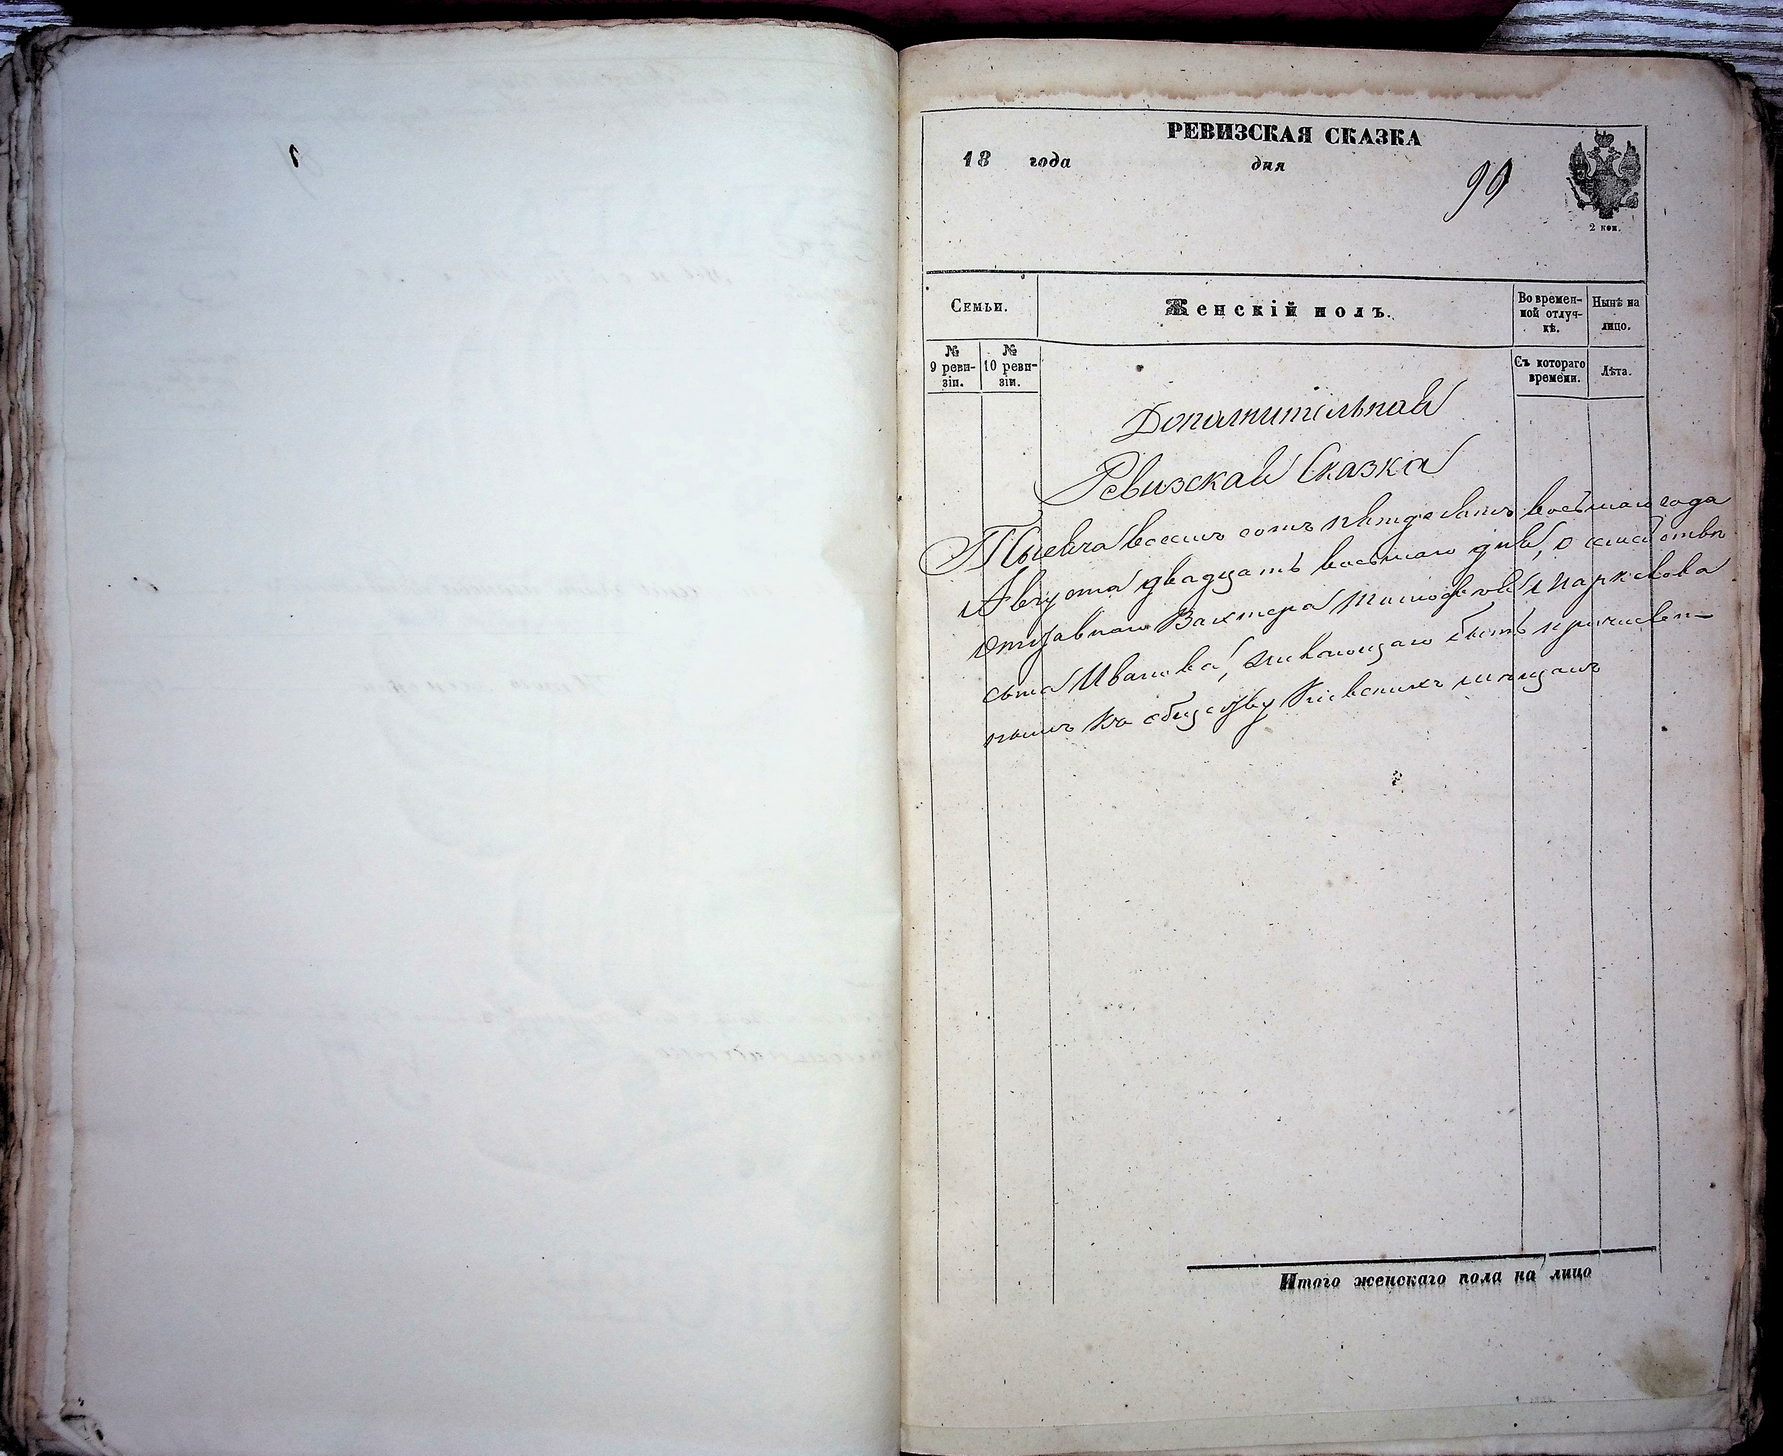 РЕВИЗСКАЯ СКАЗКА
18 года дня
99
2 коп.
Семьи.
Женскій полъ.
Во времен-
ной отлуч-
кѣ.
Нынѣ на
лицо.
№
9 реви-
зіи.
№
10 реви-
зіи.
Съ котораго
времени.
Лѣта.
Дополнительная
Ревизская Сказка
Тысяча восемь сотъ пятдесятъ восьмаго года
Августа двадцать восьмаго дня, о семействѣ
отставнаго Вахтера Тимофея Марк
сына Иванова, желающаго быть причислен-
нымъ къ обществу Кіевскихъ мѣщанъ
Итого женскаго пола на лицо